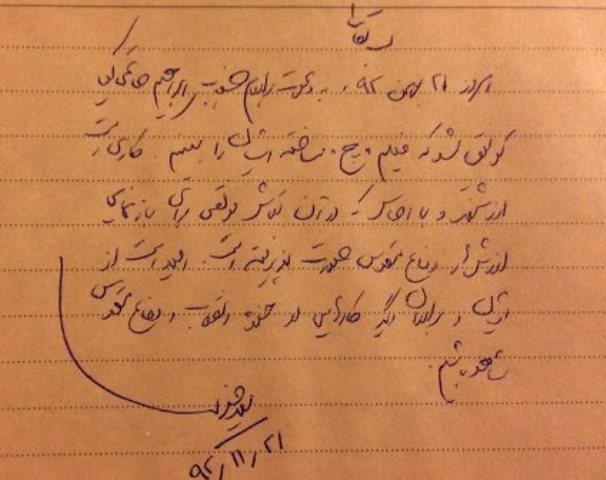 بسمه تعالی
امروز ۲۱ بهمن ۹۲، به دعوت برادرم ابراهیم حاتمی کیا
موفق شدم که فیلم «چ» ساخته ایشان را ببینم. کاری است
ارزشمند و با احساس که در آن تلاش موفقی برای بازنمایی
ارزش‌های دفاع مقدس صورت پذیرفته است. امید است از
ایشان و برادران دیگر کارهایی در حوزه انقلاب و دفاع مقدس
شاهد باشیم.
۹۲/۱۱/۲۱